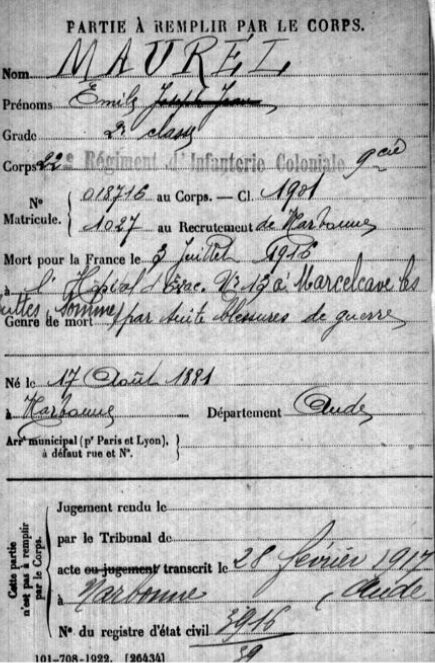 PARTIE À REMPLIR PAR LE CORPS.
Nom MAUREL
Prénoms Emile Joseph Jean
Grade 2e classe
Corps 22e Régiment d'Infanterie Coloniale 9cie
N° Matricule. { 018716 au Corps. — Cl. 1901
1027 au Recrutement de Narbonne
Mort pour la France le 3 Juillet 1916
à l'Hôpital d'Evac. N° 13 à Marcelcave les
buttes, Somme)
Genre de mort par suite blessures de guerre
Né le 17 Août 1881
à Narbonne Département Aude
Arrt municipal (pr Paris et Lyon), }
à défaut rue et N°.
Cette partie n'est pas à remplir par le Corps.
Jugement rendu le
par le Tribunal de
acte ou jugement transcrit le 28 février 1917
à Narbonne (Aude
N° du registre d'état civil 3916
39
101-708-1922. [26434]